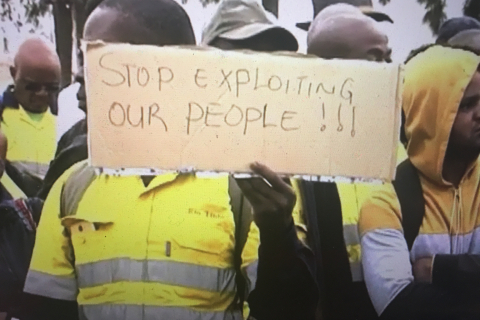 STOP EXPLOITING
OUR PEOPLE !!!